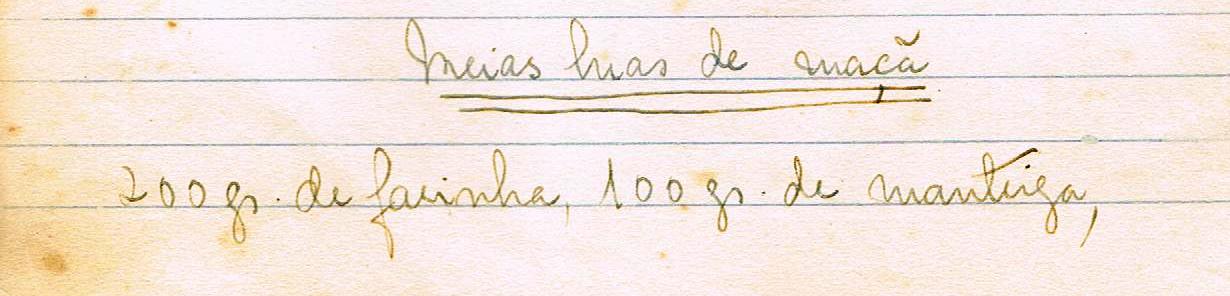 Meias luas de maçã
200 gs. de farinha, 100 gs. de manteiga,